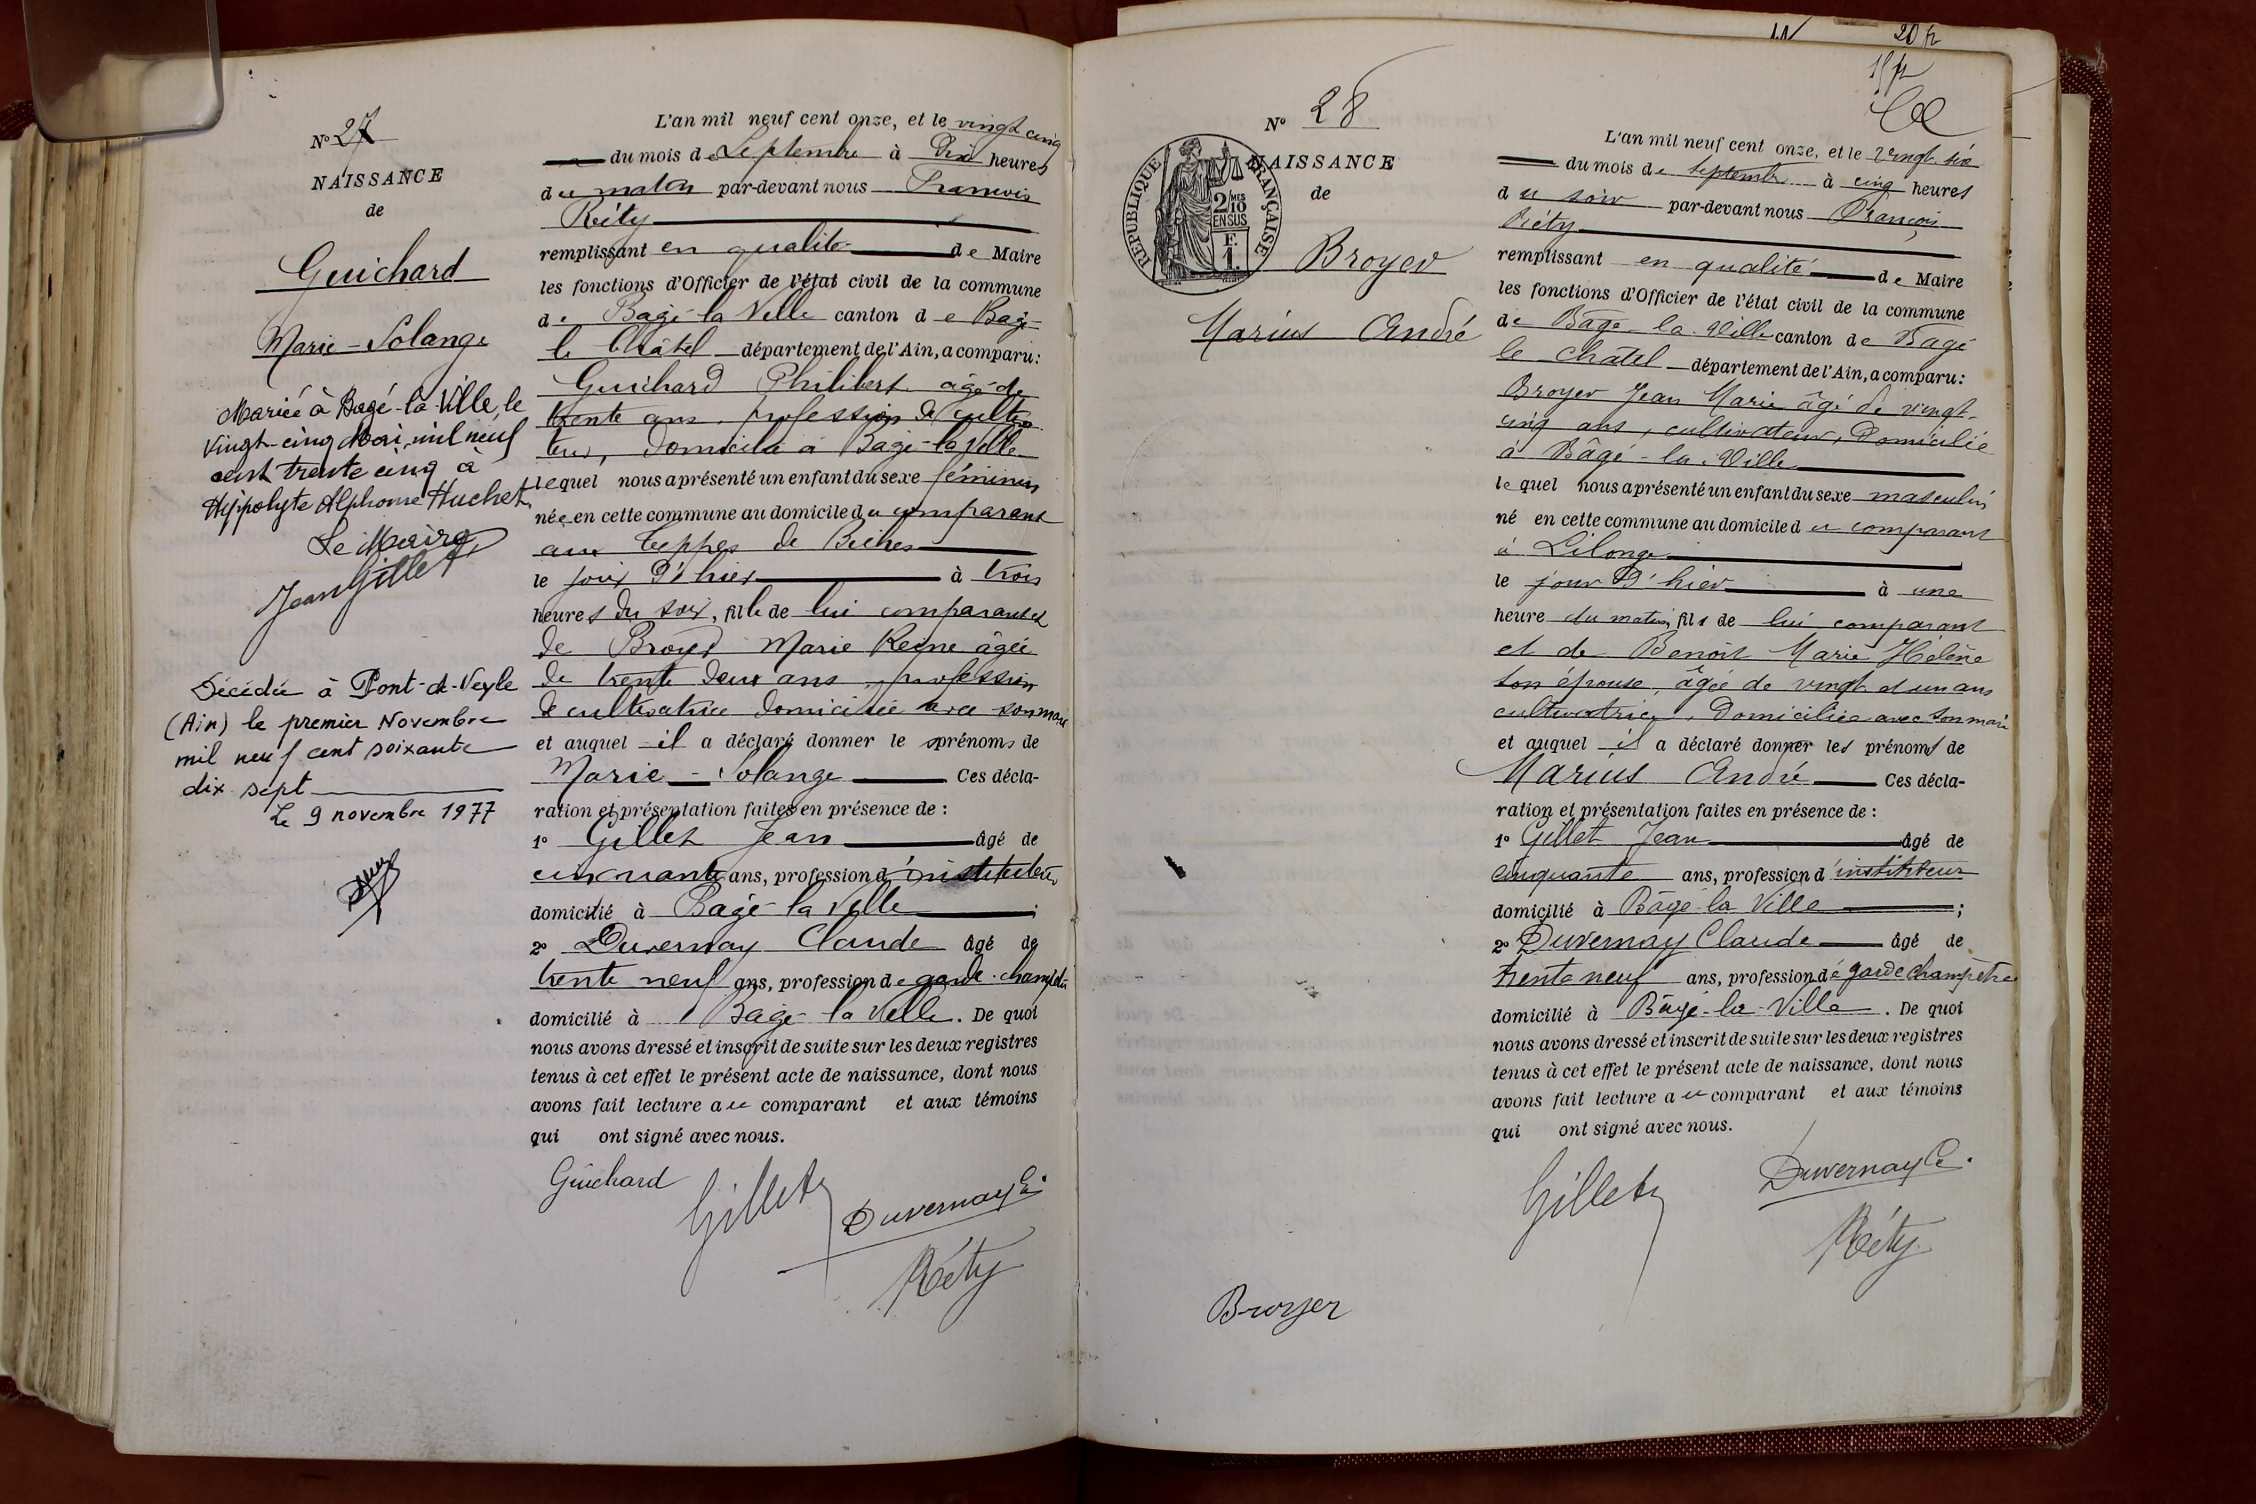 N° 27
NAISSANCE
de
Guichard
Marie - Solange
Mariée à Bagé-la-Ville, le
vingt-cinq Mai mil neuf
cent trente cinq à
Hippolyte Alphonse Huchet
Le Maire
Jean Gillet
Décédée à Pont-de-Veyle
(Ain) le premier Novembre
mil neuf cent soixante
dix sept
Le 9 novembre 1977
L'an mil neuf cent onze, et le vingt cinq
du mois de Septembre à Dix heures
du matin par-devant nous François
Réty
remplissant en qualité de Maire
les fonctions d'Officier de l'état civil de la commune
de Bagé-la Ville canton de Bagé-
le Châtel département de l'Ain, a comparu:
Guichard Philibert âgé de
trente ans, profession de cultiva-
teur, domicilié à Bagé-la Ville
lequel nous a présenté un enfant du sexe féminin
née en cette commune au domicile du comparant
aux Teppes de
le jour d'hier à trois
heures du soir, fille de lui comparant et
de Broyer Marie Reine âgée
de trente deux ans, profession
de cultivatrice domiciliée avec son mari
et auquel il a déclaré donner le prénoms de
Marie - Solange Ces décla-
ration et présentation faites en présence de :
1° Gillet Jean âgé de
cinquante ans, profession d'instituteur
domicilié à Bagé-la Ville ;
2° Duvernay Claude âgé de
trente neuf ans, profession de garde-champêtre
domicilié à Bagé-la Ville. De quoi
nous avons dressé et inscrit de suite sur les deux registres
tenus à cet effet le présent acte de naissance, dont nous
avons fait lecture au comparant et aux témoins
qui ont signé avec nous.
Guichard
Gillet
Duvernay Ce.
Réty
20 fr
15 fr
N° 28
NAISSANCE
de
RÉPUBLIQUE FRANÇAISE
2/10 MES
EN SUS
F.
1.
Broyer
Marius André
L'an mil neuf cent onze, et le vingt-six
du mois de septembre à cinq heures
du soir par-devant nous François
Réty
remplissant en qualité de Maire
les fonctions d'Officier de l'état civil de la commune
de Bâgé-la-Ville canton de Bâgé
le Châtel département de l'Ain, a comparu:
Broyer Jean Marie âgé de vingt-
cinq ans, cultivateur, domicilié
à Bâgé-la-Ville
lequel nous a présenté un enfant du sexe masculin
né en cette commune au domicile du comparant
à Lilonge
le jour d'hier à une
heure du matin, fils de lui comparant
et de Benoît Marie Hélène
son épouse, âgée de vingt et un ans
cultivatrice, domiciliée avec son mari
et auquel il a déclaré donner les prénoms de
Marius André Ces décla-
ration et présentation faites en présence de :
1° Gillet Jean âgé de
cinquante ans, profession d'instituteur
domicilié à Bâgé-la Ville ;
2° Duvernay Claude âgé de
trente neuf ans, profession de garde champêtre
domicilié à Bâgé-la-Ville. De quoi
nous avons dressé et inscrit de suite sur les deux registres
tenus à cet effet le présent acte de naissance, dont nous
avons fait lecture au comparant et aux témoins
qui ont signé avec nous.
Gillet
Duvernay Ce.
Réty
Broyer